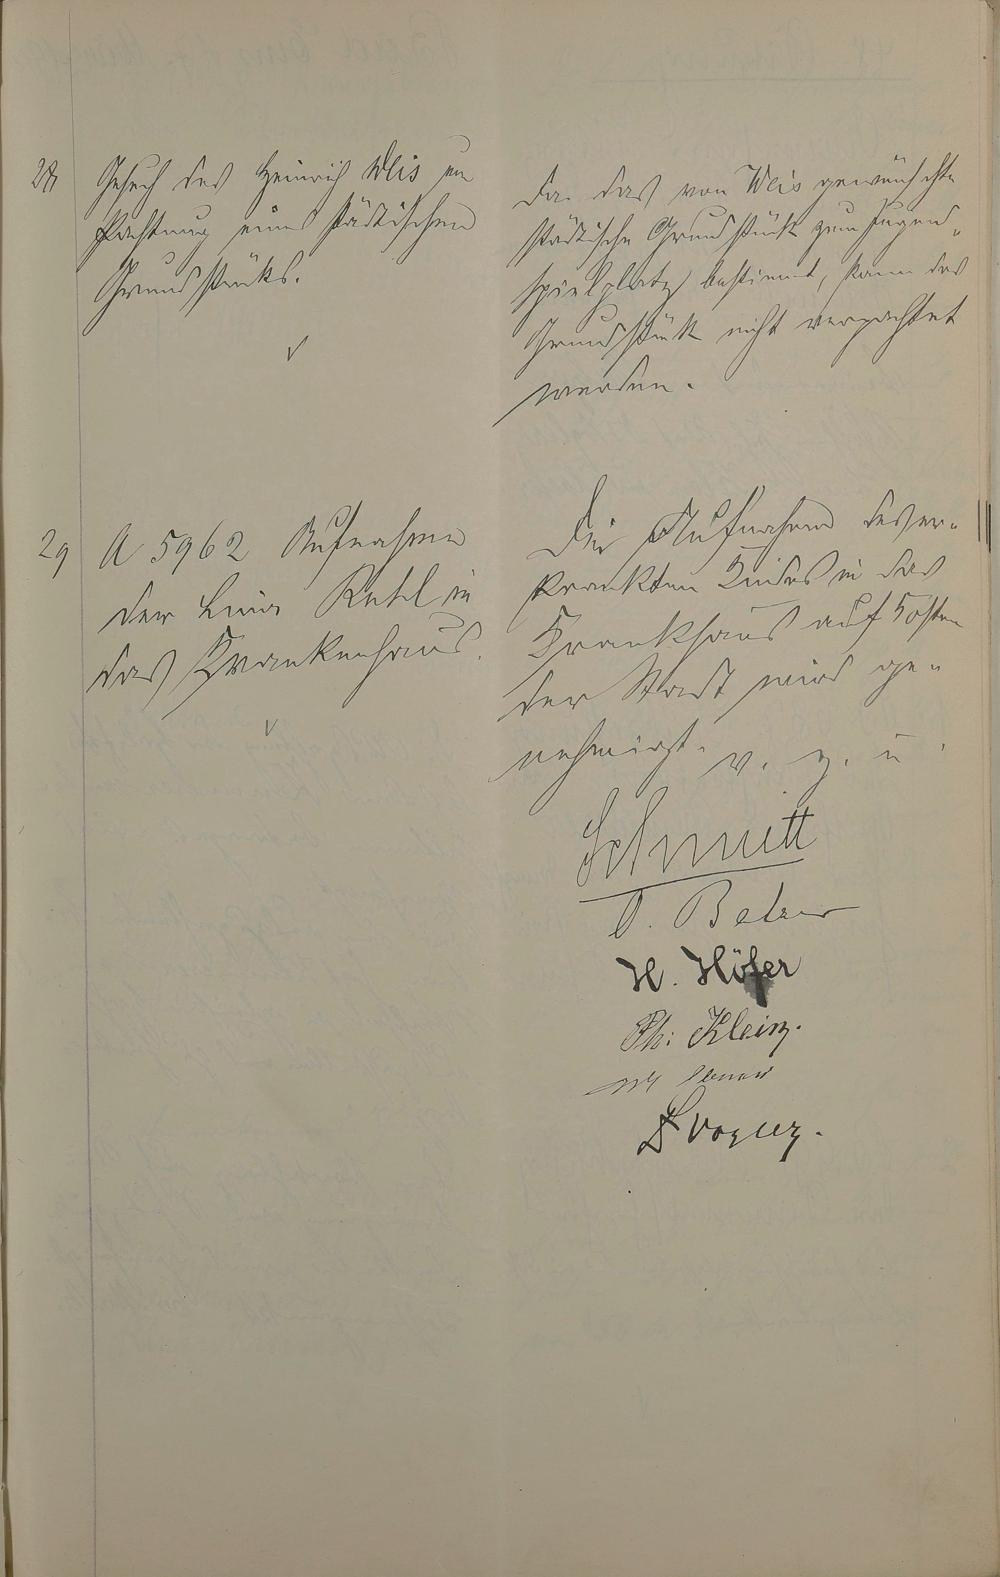 28
Gesuch des Heinrich Weis um
Pachtung eines städtischen
Grundstücks.
Da das von Weis gewünschte
städtische Grundstück zum Jugend-
spielplatz bestimmt, kann das
Grundstück nicht verpachtet
werden.
29
A 5962 Aufnahme
der
in
das Krankenhaus.
Die Aufnahme des er-
krankten Kindes in das
Krankhaus auf Kosten
der Stadt wird ge-
nehmigt.
v. g. u.
Schmitt
H. Höfer
Ph: Klein.